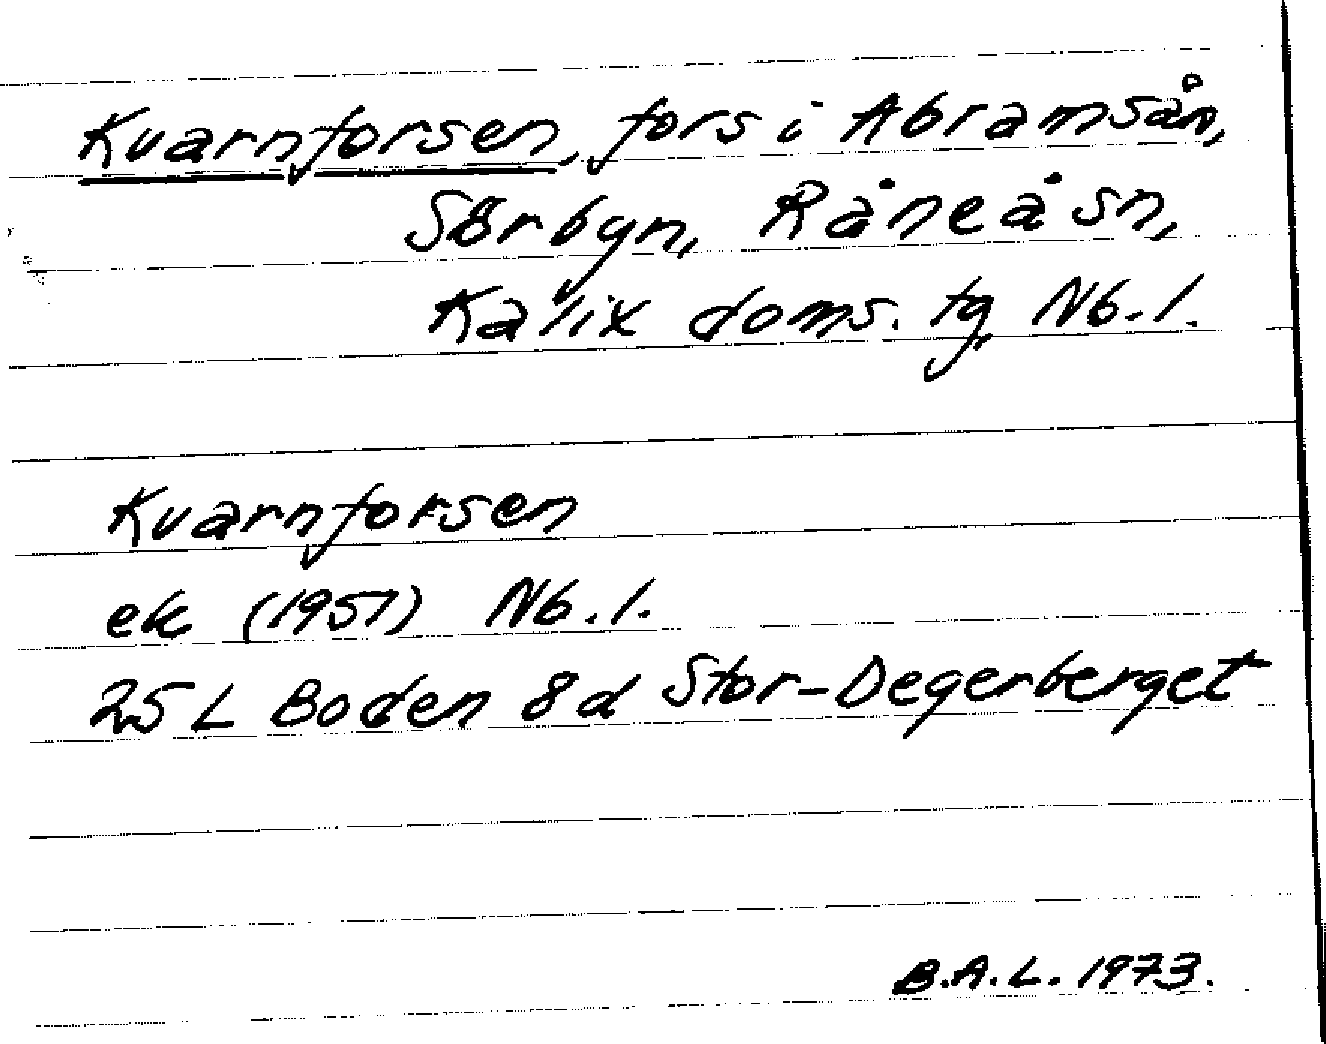 Kvarnforsen, fors i Abramsån,
Sörbyn, Råneå sn,
Kalix doms. tg, Nb. l.
Kvarnforsen
ek (1951) Nb. l.
25 L Boden 8d Stor-Degerberget
B.A.L. 1973.